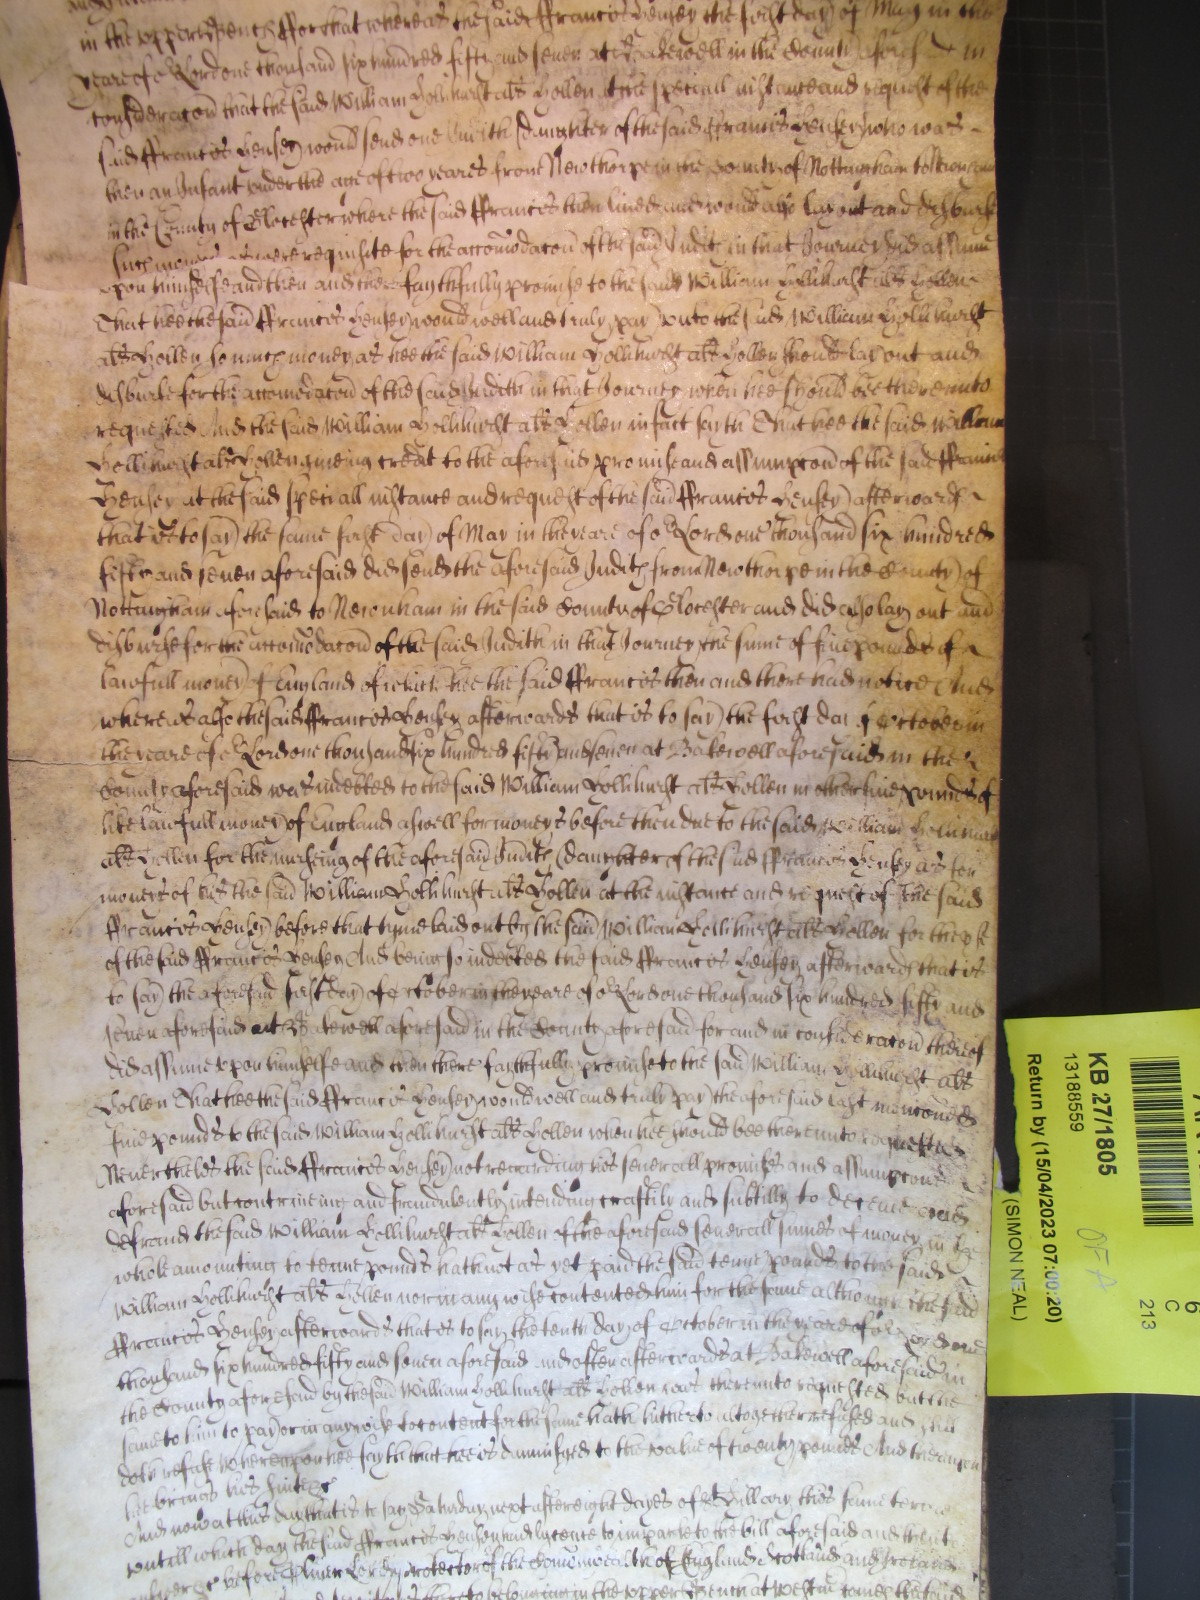 in the upper Bench ffor that whereas the said ffrancis Hensey the first day of May in the
yeare of or Lord one thousand six hundred fifty and seven at Bakewell in the County aforesd in
consideracon that the said William Hollihurst als Hollen at the speciall instance and request of the
said ffrancis Hensey would send one Judith daughter of the said ffrancis Hensey who was
then an Infant under the age of two yeares from Newthorpe in the County of Nottingham to Newnham
in the County of Glocester where the said ffrancis then lived and would also lay out and disburse
such moneys as were requisite for the accomodacon of the said Judith in that Journey did assume
upon himselfe and then and there faythfully promise to the said William Hollihurst als Hollen
That hee the said ffrancis Hensey would well and truly pay unto the said William Hollihurst
als Hollen so much money as hee the said William Hollihurst als Hollen should lay out and
disburse for the accomodacon of the said Judith in that Journey when hee should bee thereunto
requested And the said William Hollihurst als Hollen in fact sayth That hee the said William
Hollihurst als Hollen giveing credit to the aforesaid promise and assumpcon of the said ffrancis
Hensey at the said speciall instance and request of the said ffrancis Hensey afterwards
that is to say the same first day of May in the yeare of or Lord one thousand six hundred
fifty and seven aforesaid did send the aforesaid Judith from Newthorpe in the County of
Nottingham aforesaid to Newnham in the said County of Glocester and did also lay out and
disburse for the accomodacon of the said Judith in that Journey the summe of five pounds of
lawfull money of England of which hee the said ffrancis then and there had notice And
whereas also the said ffrancis Hensey afterwards that is to say the first day of October in
the yeare of or Lord one thousand six hundred fifty and seven at Bakewell aforesaid in the
County aforesaid was indebted to the said William Hollihurst als Hollen in other five pounds of
like lawfull money of England aswell for moneys before then due to the said William Hollihurst
als Hollen for the nurseing of the aforesaid Judith daughter of the said ffrancis Hensey as for
moneys of his the said William Hollihurst als Hollen at the instance and request of the said
ffrancis Hensey before that tyme laid out by the said William Hollihurst als Hollen for the use
of the said ffrancis Hensey And being so indebted the said ffrancis Hensey afterwards that is
to say the aforesaid first day of October in the yeare of or Lord one thousand six hundred fifty and
seven aforesaid at Bakewell aforesaid in the County aforesaid for and in consideracon thereof
did assume upon himselfe and then there faythfully promise to the said William Hollihurst als
Hollen That hee the said ffrancis Hensey would well and truly pay the aforesaid last menconed
five pounds to the said William Hollihurst als Hollen when hee should bee thereunto requested
Neverthelesse the said ffrancis Hensey not regarding his severall promises and assumpcons
aforesaid but contriveing and fraudulently intending craftily and subtilly to deceive and
defraud the said William Hollihurst als Hollen of the aforesaid severall summes of money in the
whole amounting to tenne pounds hath not as yet paid the said tenne pounds to the said
William Hollihurst als Hollen nor in any wise contented him for the same although the said
ffrancis Hensey afterwards that is to say the tenth day of October in the yeare of or Lord one
thousand six hundred fifty and seven aforesaid and often afterwards at Bakewell aforesaid in
the County aforesaid by the said William Hollihurst als Hollen was thereunto requested but the
same to him to pay or in any wise to content for the same hath hitherto altogether refused and still
doth refuse Whereupon hee sayth that hee is damnifyed to the value of twenty pounds And thereupon
hee brings his suite &c
And now at this day that is to say Saturday next after eight dayes of St Hillary this same terme
untill which day the said ffrancis Hensey had lycence to imparle to the bill aforesaid and then to
answere &c before Oliver Lord Protector of the Comonwealth of England Scotland and Ireland
in the upper Bench at Westm
KB 27/1805
13188559
Return by (15/04/2023 07:00:20)
(SIMON NEAL)
OFA
6
C
213